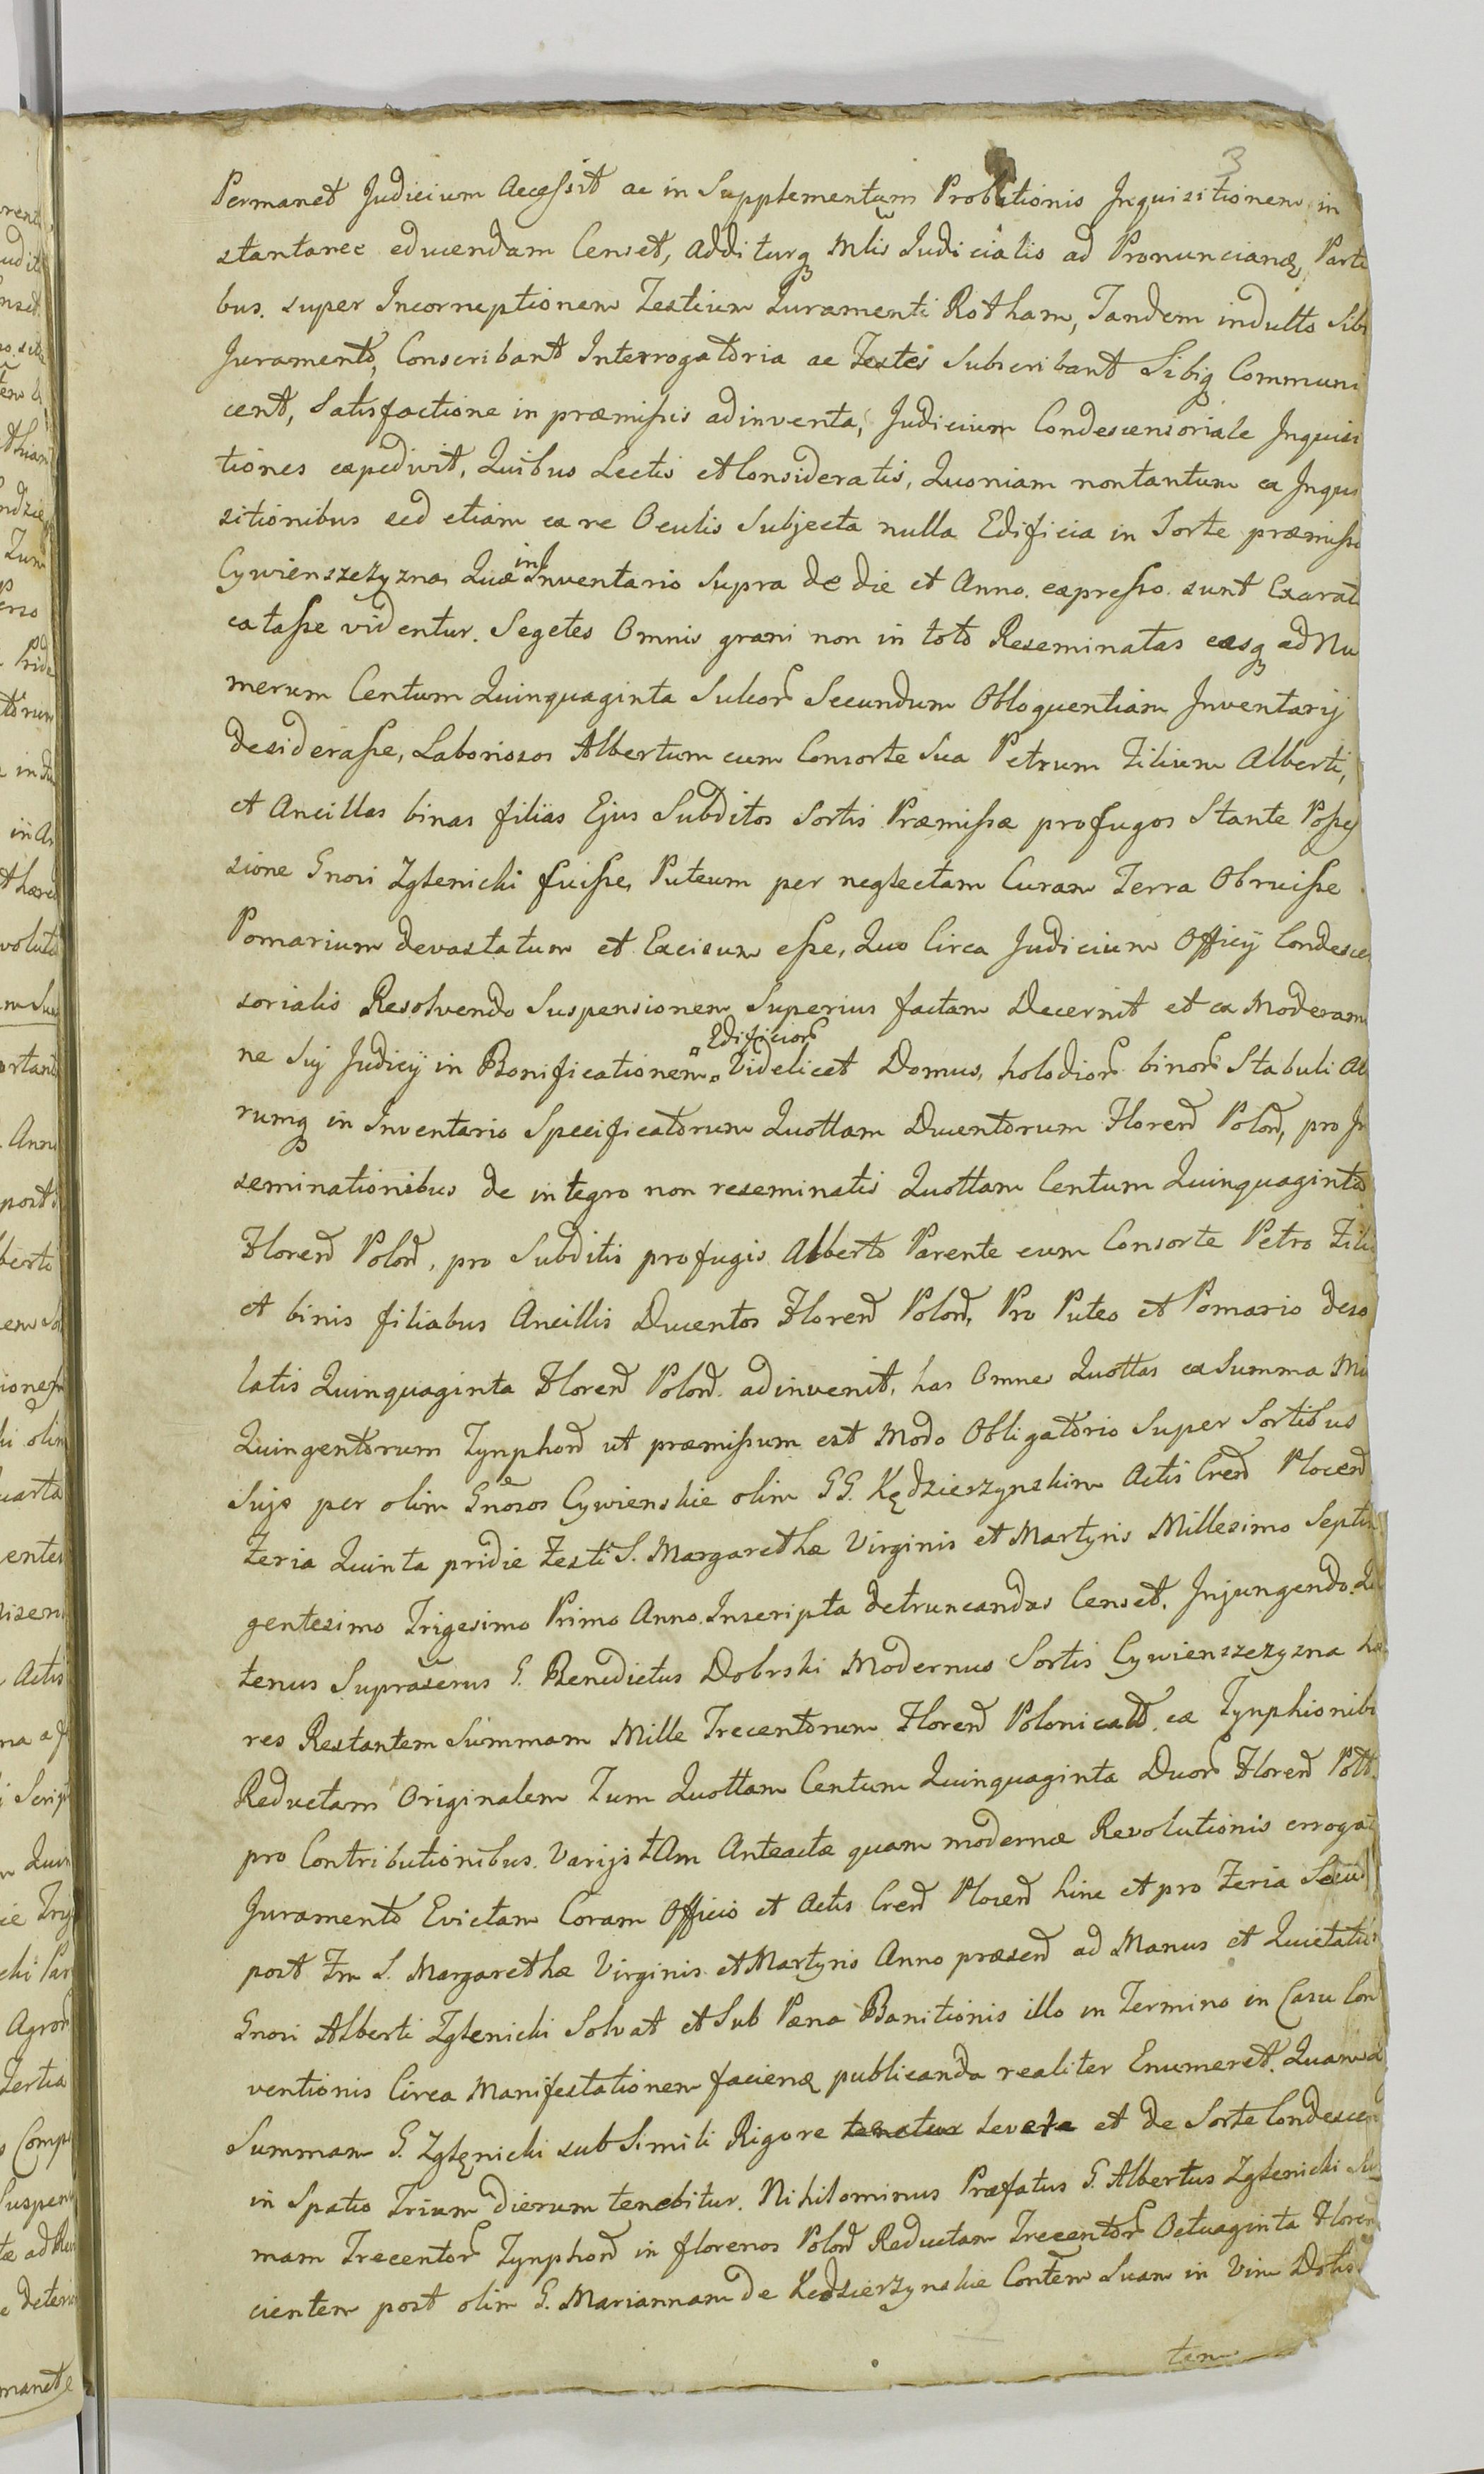 3
Permanet Judicium Accessit ac in Supplementum Probationis Inquisitionem in
stantanee educendam Censet, additurq Mlis Judicialis ad Pronuncianđ Parti
bus. super Incorreptionem Testium Juramenti Rotham, Tandem indulto Sibi
Juramento, Conscribant Interrogatoria ac Testes Subscribant Sibiq Communi
cent, Satisfactione in præmissis adinventa, Judicium Condescensoriale Inquisi
tiones expedivit, Quibus Lectis et Consideratis, Quoniam nontantum ex Inqui
sitionibus sed etiam ex re Oculis Subjecta nulla Edificia in Sorte præmissa
Cywienszczyzna Quæ in Inventario Supra de die et Anno. expresso. sunt Exarat
extasse videntur. Segetes Omnis grani non in toto Reseminatas easq ad Nu
merum Centum Quinquaginta Sulcor Secundum Obloquentiam Inventarij
desiderasse, Laboriosos Albertum cum Consorte Sua Petrum Filium Alberti,
et Ancillas binas filias Ejus Subditos Sortis Præmissæ profugos Stante Posses
sione Gnosi Zglenicki fuisse, Puteum per neglectam Curam Terra Obruisse
Pomarium devastatum et Excisum esse, Quo Circa Judicium Officij Condescen
sorialis Resolvendo Suspensionem Superius factam Decernit et ex Moderami
ne Sui Judicij in Bonificationem Edificior Videlicet Domus, holodior binor Stabuli Al
rumq in Inventario Specificatorum Quottam Ducentorum Floren Polon, pro In
seminationibus de integro non reseminatis Quottam Centum Quinquaginta
Floren Polon, pro Subditis profugis Alberto Parente cum Consorte Petro Filio
et binis filiabus Ancillis Ducentos Floren Polon, Pro Puteo et Pomario deso
latis Quinquaginta Floren Polon. adinvenit, has Omnes Quottas ex Summa Mi
Quingentorum Tynphon ut præmissum est Modo Obligatorio Super Sortibus
Sujs per olim Gnosos Cywienskie olim GG. Kędzierzynskim Actis Cren Plocen
Feria Quinta pridie Festi S. Margarethæ Virginis et Martyris Millesimo Septin
gentesimo Trigesimo Primo Anno. Inscripta detruncandas Censet. Injungendo. Qua
tenus Suprascrius G. Benedictus Dobrski Modernus Sortis Cywienszczyzna hæ
res Restantem Summam Mille Trecentorum Floren Polonicalt. ex Tynphionibus
Reductam Originalem Tum Quottam Centum Quinquaginta Duor Floren Poltt.
pro Contributionibus. Varijs tam Anteactæ quam modernæ Revolutionis errogat
Juramento Evictam Coram Officio et Actis Cren Plocen hinc et pro Feria Secud
post Fm S. Margarethæ Virginis et Martyris Anno præsen ad Manus et Quietatio
Gnosi Alberti Zglenicki Solvat et Sub Pæna Banitionis illo in Termino in Casu Con
ventionis Circa Manifestationem facienđ publicanda realiter Enumeret. Quam
Summam G. Zglęnicki sub Simili Rigore tenetur levare et de Sorte Condescen
in Spatio Trium dierum tenebitur. Nihilominus Præfatus G. Albertus Zglenicki Sum
mam Trecentor Tynphon in florenos Polon Reductam Trecentor Octuaginta Floren
cientem post olim G. Mariannam de Kędzierzynskie Contem Suam in Vim Dotis
tem